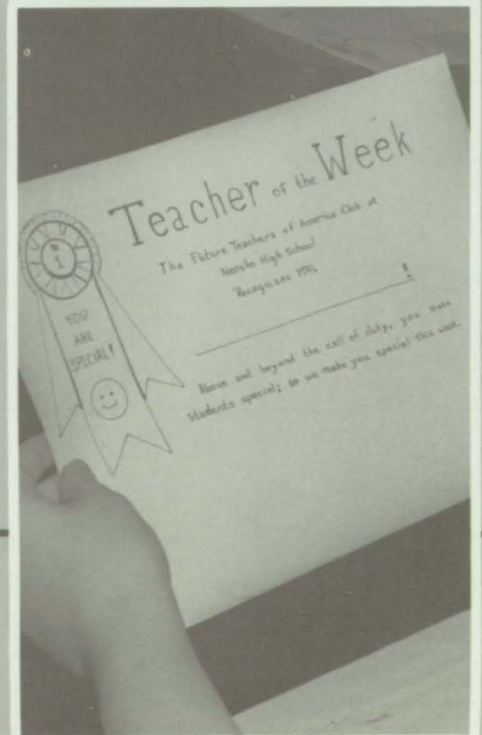 Teacher of the Week
The Future Teachers of America Club at
Neosho High School
Recognizes YOU,
!
Above and beyond the call of duty, you make
students special; so we make you special this week.
# 1
YOU
ARE
SPECIAL!